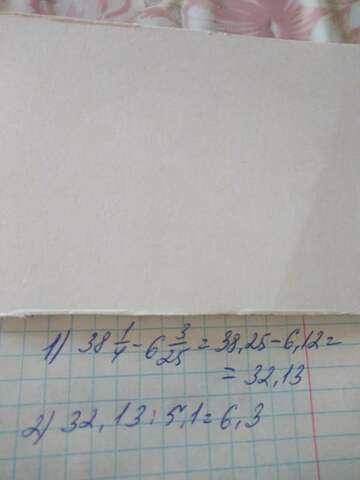 1) 38 1/4 - 6 3/25 = 38,25 - 6,12 =
= 32,13
2) 32,13 : 5,1 = 6,3